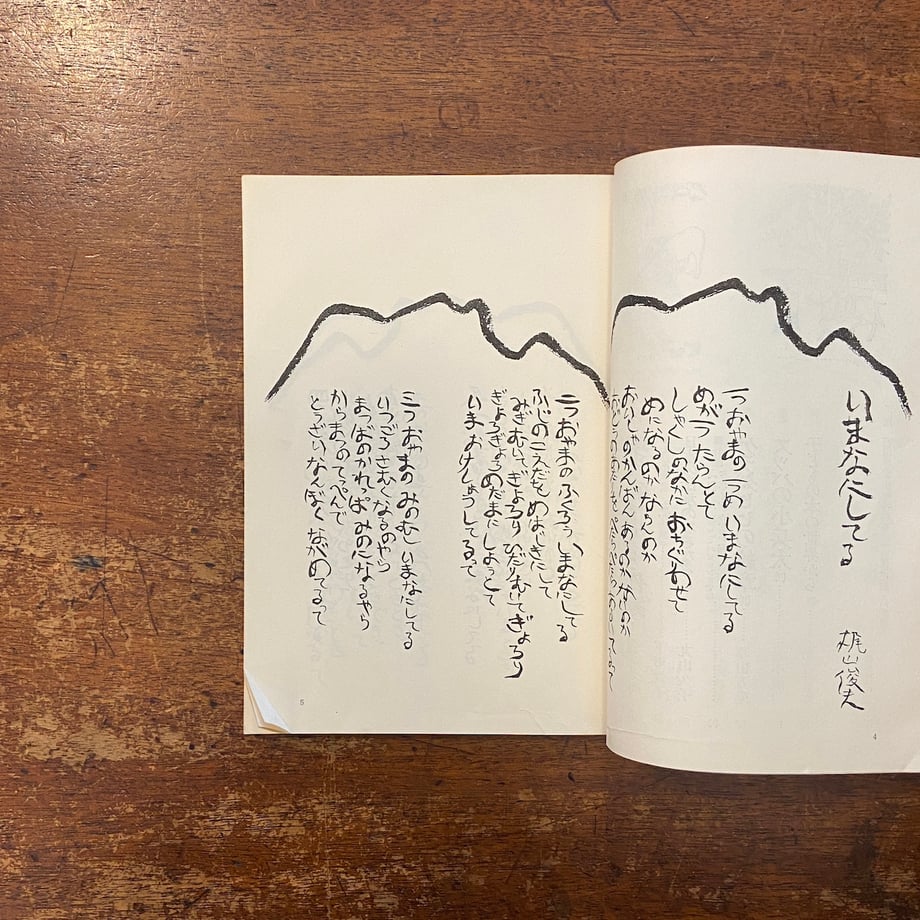 いまなにしてる
梶山俊夫
一つおやまの一つめ いまなにしてる
めが一つたらんとて
しゃくしのなかに おちぐりのせて
めになるのか ならんのか
おいしゃのかんばん あるのか ないのか
4
二つおやまの ふくろう いまなにしてる
ふじのこえだを めはじきにして
みぎむいて ぎょろり ひだりむいて ぎょろり
ぎょろぎょろめだまに しようとて
いま おけしょうしてるって
三つ おやまの みのむし いまなにしてる
いつごろ さむくなるのやら
まつばのかれっぱ みのになるやら
からまつの てっぺんで
とうざいなんぼく ながめてるって
5